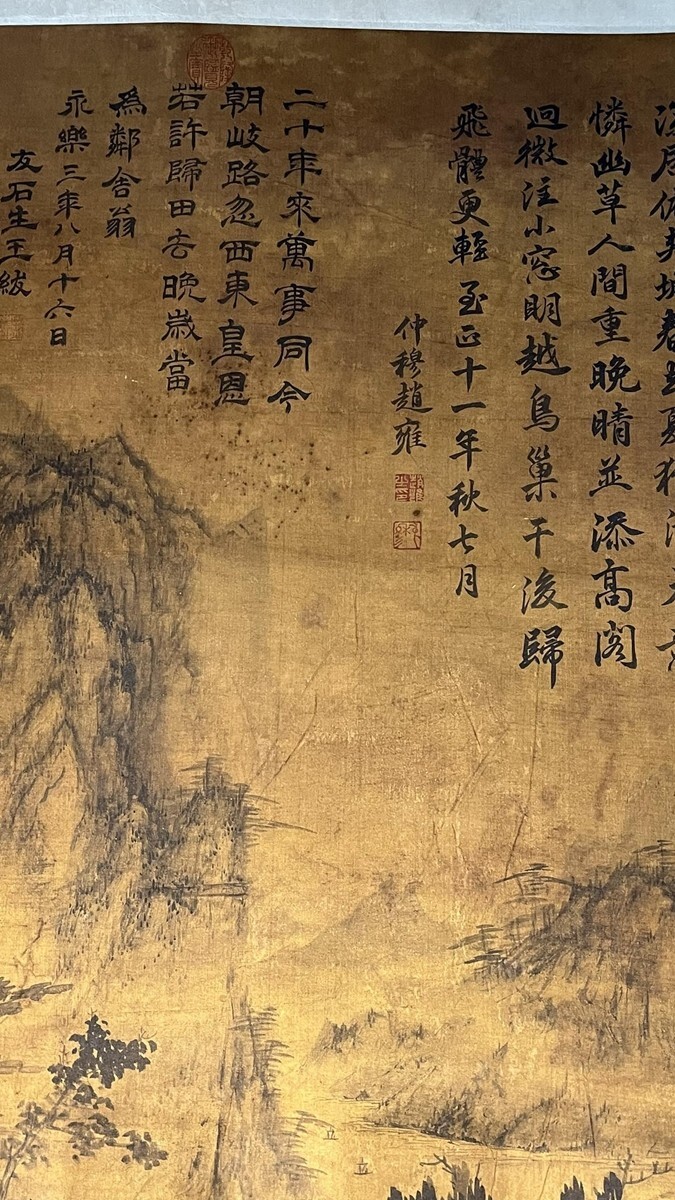 深居夾城春去夏猶清天意
憐幽草人間重晚晴並添高閣
迴微注小窓明越鳥巢干後歸
飛體更輕至正十一年秋七月
仲穆趙雍
二十年來萬事同今
朝岐路忽西東皇恩
若許歸田去晚歲當
為鄰舍翁
永樂三年八月十六日
友石生王紱